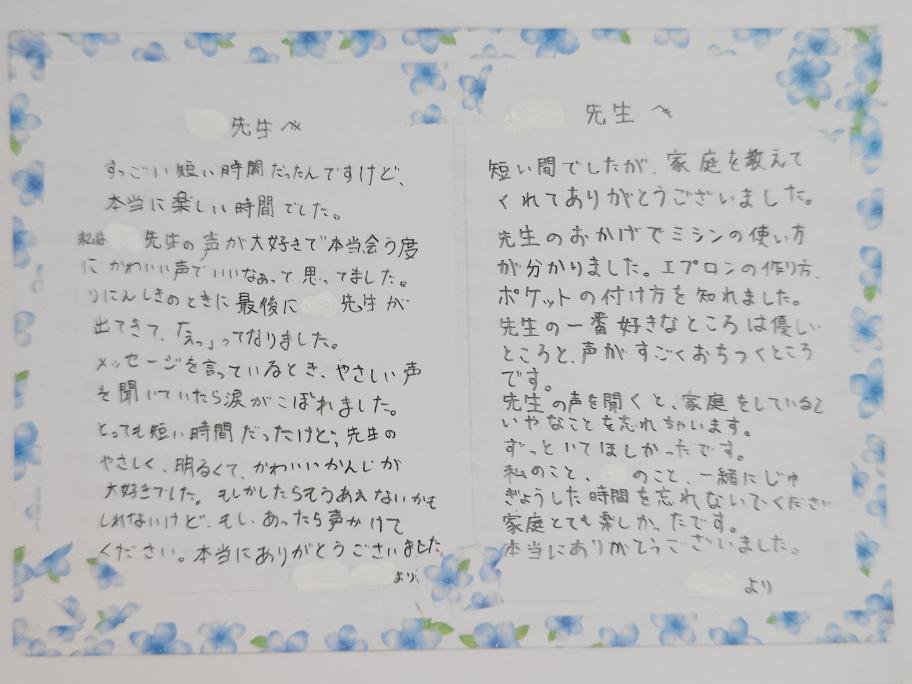 先生へ
すっごい短い時間だったんですけど、
本当に楽しい時間でした。
私は 先生の声が大好きで本当会う度
に かわいい声でいいなぁって思ってました。
りにんしきのときに最後に 先生が
出てきて、「えっ」ってなりました。
メッセージを言っているとき、やさしい声
を聞いていたら涙がこぼれました。
とっても短い時間だったけど、先生の
やさしく、明るくて、かわいいかんじが
大好きでした。もしかしたらもうあえないかも
しれないけど、もし、あったら声かけて
ください。本当にありがとうございました。
より
先生へ
短い間でしたが、家庭を教えて
くれてありがとうございました。
先生のおかげでミシンの使い方
が分かりました。エプロンの作り方、
ポケットの付け方を知れました。
先生の一番好きなところは優しい
ところと、声がすごくおちつくところ
です。
先生の声を聞くと、家庭をしていると
いやなことを忘れちゃいます。
ずっといてほしかったです。
私のこと、 のこと、一緒にじゅ
ぎょうした時間を忘れないでください
家庭とても楽しかったです。
本当にありがとうございました。
より